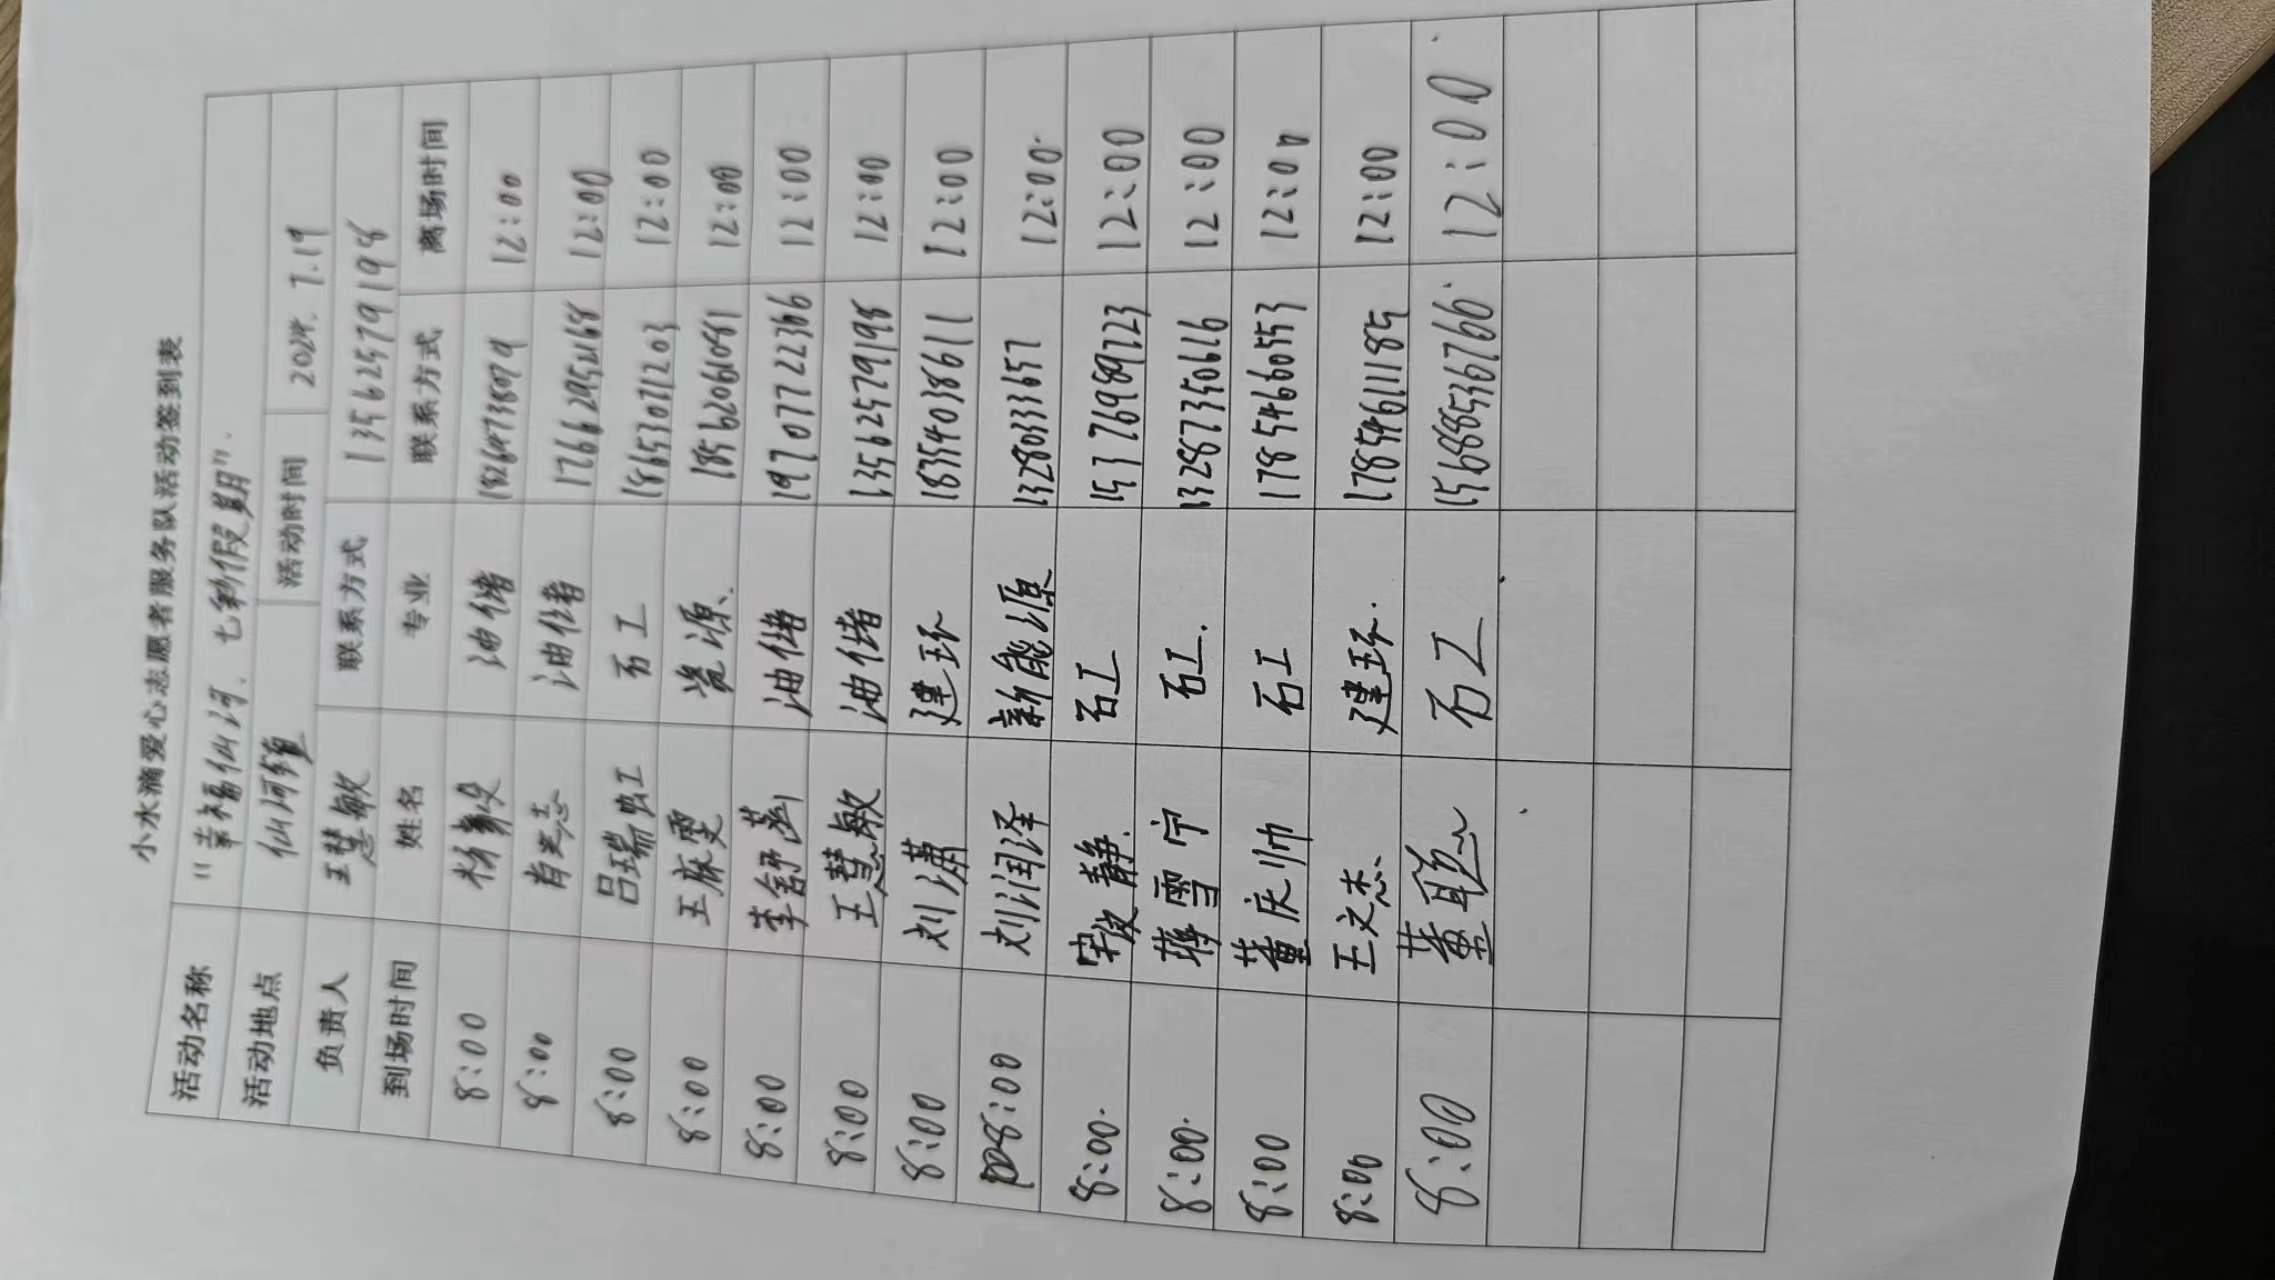 小水滴爱心志愿者服务队活动签到表
活动名称 "幸福仙河、七彩假期".
活动地点 仙河镇 活动时间 2024.7.19
负责人 王慧敏 联系方式 13562579198
到场时间 姓名 专业 联系方式 离场时间
8:00 油储 12:00
8:00 油储 12:00
8:00 吕瑞虹 石工 18653071203 12:00
8:00 王麻雯 资源. 18562061081 12:00
8:00 李舒菡 油储 19707722366 12:00
8:00 王慧敏 油储 13562579198 12:00
8:00 刘潇 建环 18354038611 12:00
8:00 刘润泽 新能源 13280333657 12:00.
8:00. 宋波静. 石工 15376989723 12:00
8:00. 蒋雪宁 石工. 13287350616 12:00
8:00 董庆帅 石工 17854660553 12:00
8:00 王文杰 建环. 17854611185 12:00
8:00 董聪 石工 15688536766. 12:00